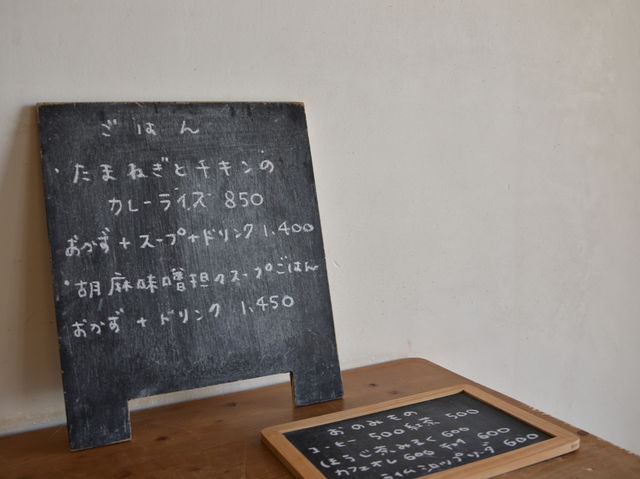 ごはん
・たまねぎとチキンの
カレーライス 850
おかず+スープ+ドリンク 1,400
・胡麻味噌担々スープごはん
おかず+ドリンク 1,450
おのみもの
コーヒー 500 紅茶 500
ほうじ茶みるく 600 600
カフェオレ 600 600
ライムシロップソーダ